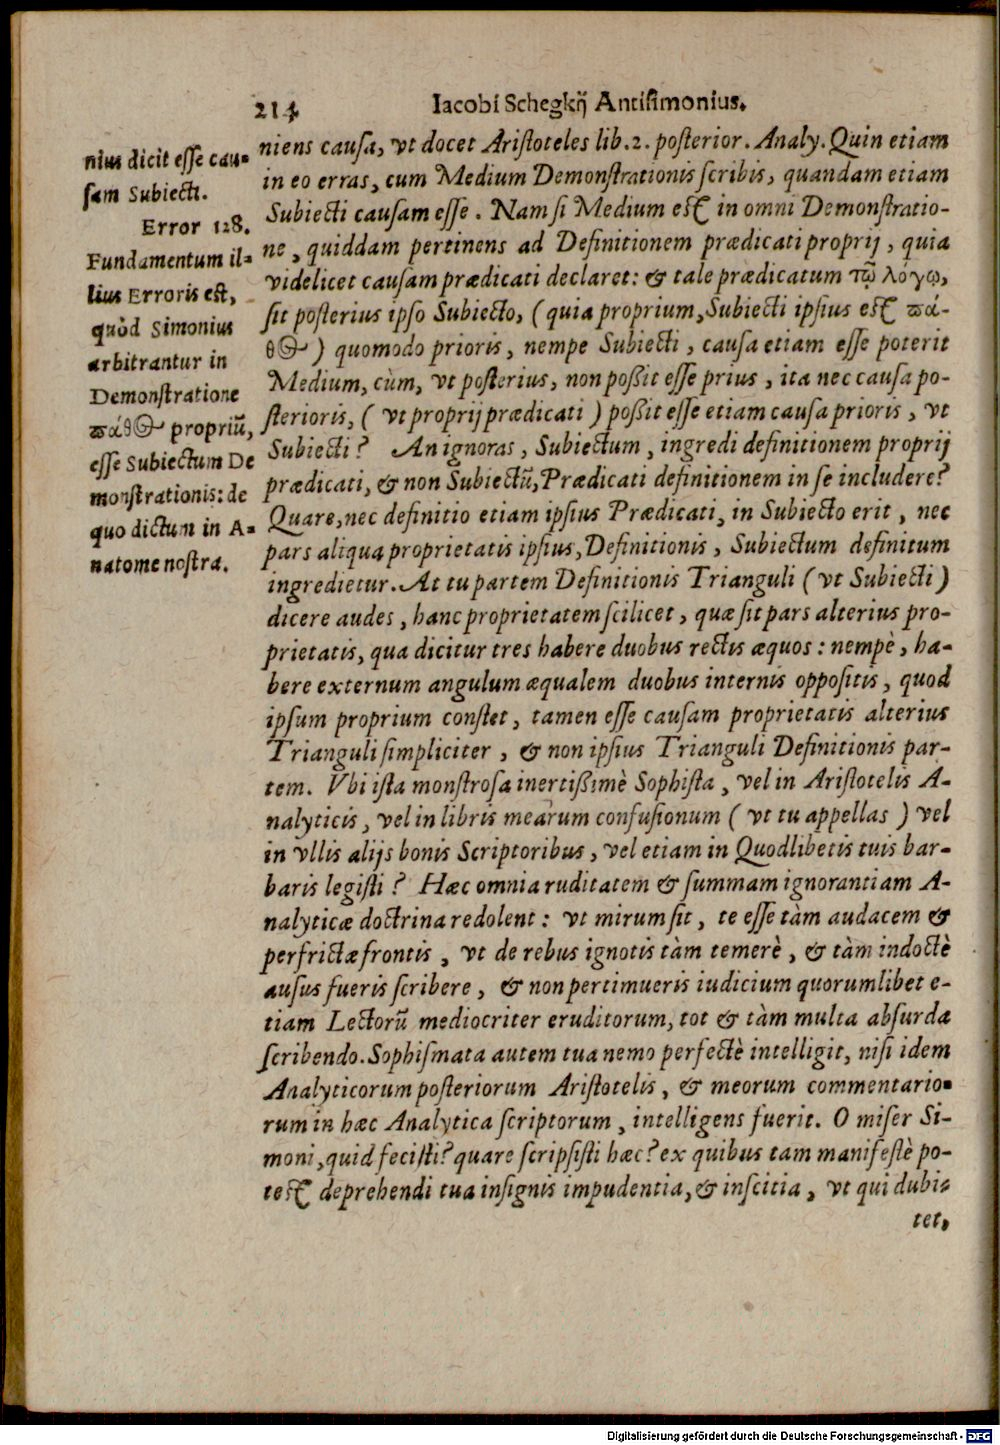 214 Iacobi Schegkij Antisimonius.
nius dicit esse cau-
sam Subiecti.
Error 128.
Fundamentum il-
lius Erroris est,
quòd Simonius
arbitrantur in
Demonstratione
πάθος propriũ,
esse Subiectum De
monstrationis: de
quo dictum in A-
natome nostra.
niens causa, vt docet Aristoteles lib. 2. posterior. Analy. Quin etiam
in eo erras, cum Medium Demonstrationis scribis, quandam etiam
Subiecti causam esse. Nam si Medium est in omni Demonstratio-
ne, quiddam pertinens ad Definitionem prædicati proprij, quia
videlicet causam prædicati declaret: & tale prædicatum τῷ λόγῳ,
sit posterius ipso Subiecto, (quia proprium, Subiecti ipsius est πά-
θος) quomodo prioris, nempe Subiecti, causa etiam esse poterit
Medium, cùm, vt posterius, non poßit esse prius, ita nec causa po-
sterioris, (vt proprij prædicati) poßit esse etiam causa prioris, vt
Subiecti? An ignoras, Subiectum, ingredi definitionem proprij
prædicati, & non Subiectũ, Prædicati definitionem in se includere?
Quare, nec definitio etiam ipsius Prædicati, in Subiecto erit, nec
pars aliqua proprietatis ipsius, Definitionis, Subiectum definitum
ingredietur. At tu partem Definitionis Trianguli (vt Subiecti)
dicere audes, hanc proprietatem scilicet, quæ sit pars alterius pro-
prietatis, qua dicitur tres habere duobus rectis æquos: nempè, ha-
bere externum angulum æqualem duobus internis oppositis, quod
ipsum proprium constet, tamen esse causam proprietatis alterius
Trianguli simpliciter, & non ipsius Trianguli Definitionis par-
tem. Vbi ista monstrosa inertißimè Sophista, vel in Aristotelis A-
nalyticis, vel in libris mearum confusionum (vt tu appellas) vel
in vllis alijs bonis Scriptoribus, vel etiam in Quodlibetis tuis bar-
baris legisti? Hæc omnia ruditatem & summam ignorantiam A-
nalyticæ doctrina redolent: vt mirum sit, te esse tàm audacem &
perfrictæ frontis, vt de rebus ignotis tàm temerè, & tàm indoctè
ausus fueris scribere, & non pertimueris iudicium quorumlibet e-
tiam Lectorũ mediocriter eruditorum, tot & tàm multa absurda
scribendo. Sophismata autem tua nemo perfectè intelligit, nisi idem
Analyticorum posteriorum Aristotelis, & meorum commentario-
rum in hæc Analytica scriptorum, intelligens fuerit. O miser Si-
moni, quid fecisti? quare scripsisti hæc? ex quibus tam manifestè po-
test deprehendi tua insignis impudentia, & inscitia, vt qui dubi-
tet,
Digitalisierung gefördert durch die Deutsche Forschungsgemeinschaft - DFG